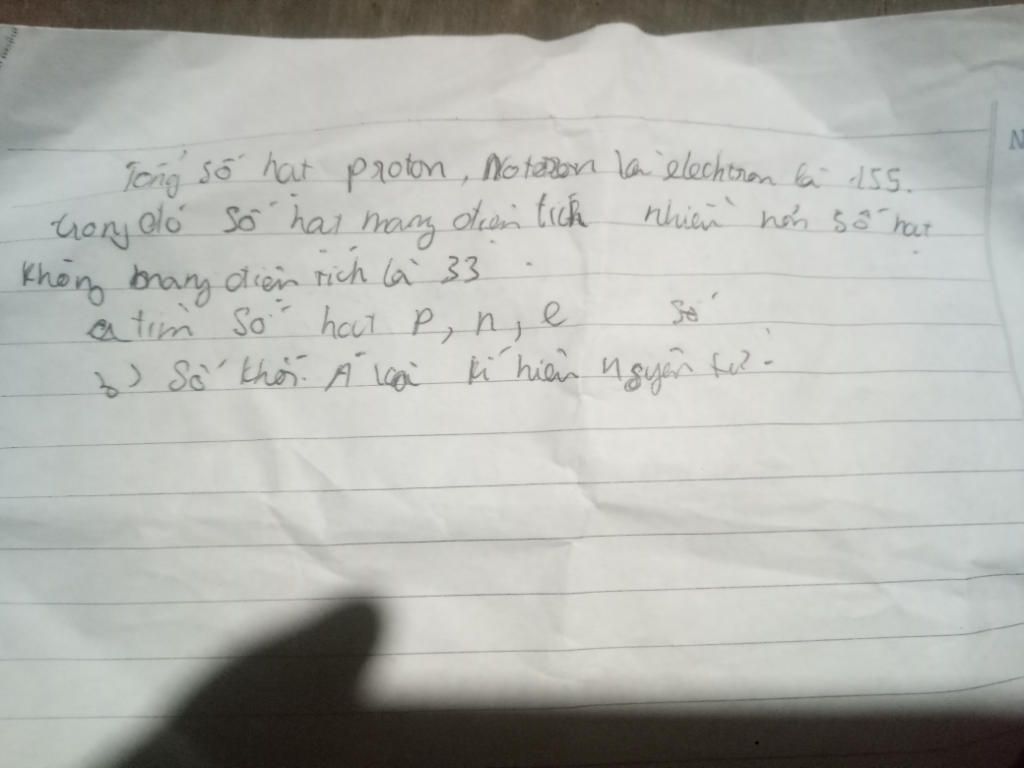 Tổng số hạt proton, Noteron là electron là 155.
trong đó số hạt mang điện tích nhiều hơn số hạt
không mang điện tích là 33
a tìm số hạt p, n, e số
b) Số khối A kí hiệu nguyên tử.
N